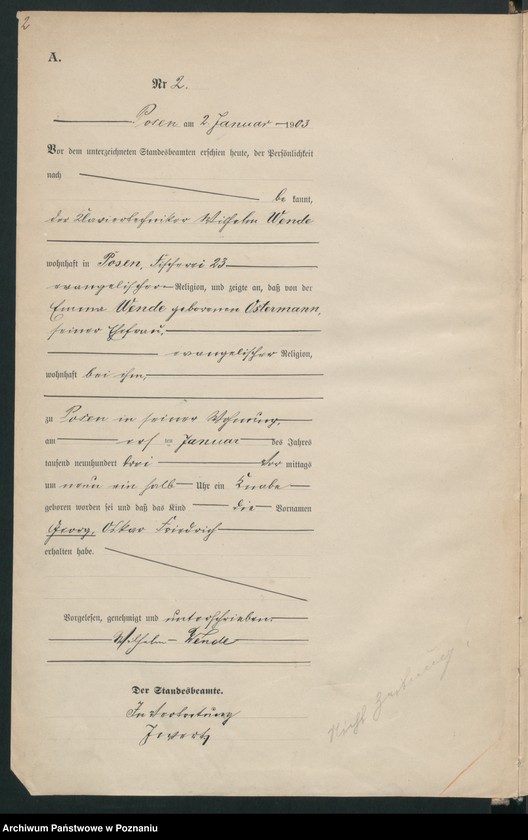 2
A.
Nr 2.
Posen am 2. Januar 1903
Vor dem unterzeichneten Standesbeamten erschien heute, der Persönlichkeit
nach
be kannt,
der Klaviertechniker Wilhelm Wende
wohnhaft in Posen, Fischerei 23
evangelischer Religion, und zeigte an, daß von der
Emma Wende geborenen Ostermann,
seiner Ehefrau,
evangelischer Religion,
wohnhaft bei ihm,
zu Posen in seiner Wohnung,
am ersten Januar des Jahres
tausend neunhundert drei Vor mittags
um neun ein halb Uhr ein Knabe
geboren worden sei und daß das Kind die Vornamen
Georg, Oskar Friedrich
erhalten habe.
Vorgelesen, genehmigt und unterschrieben.
Wilhelm Wende
Der Standesbeamte.
In Vertretung
Nicht
Archiwum Państwowe w Poznaniu